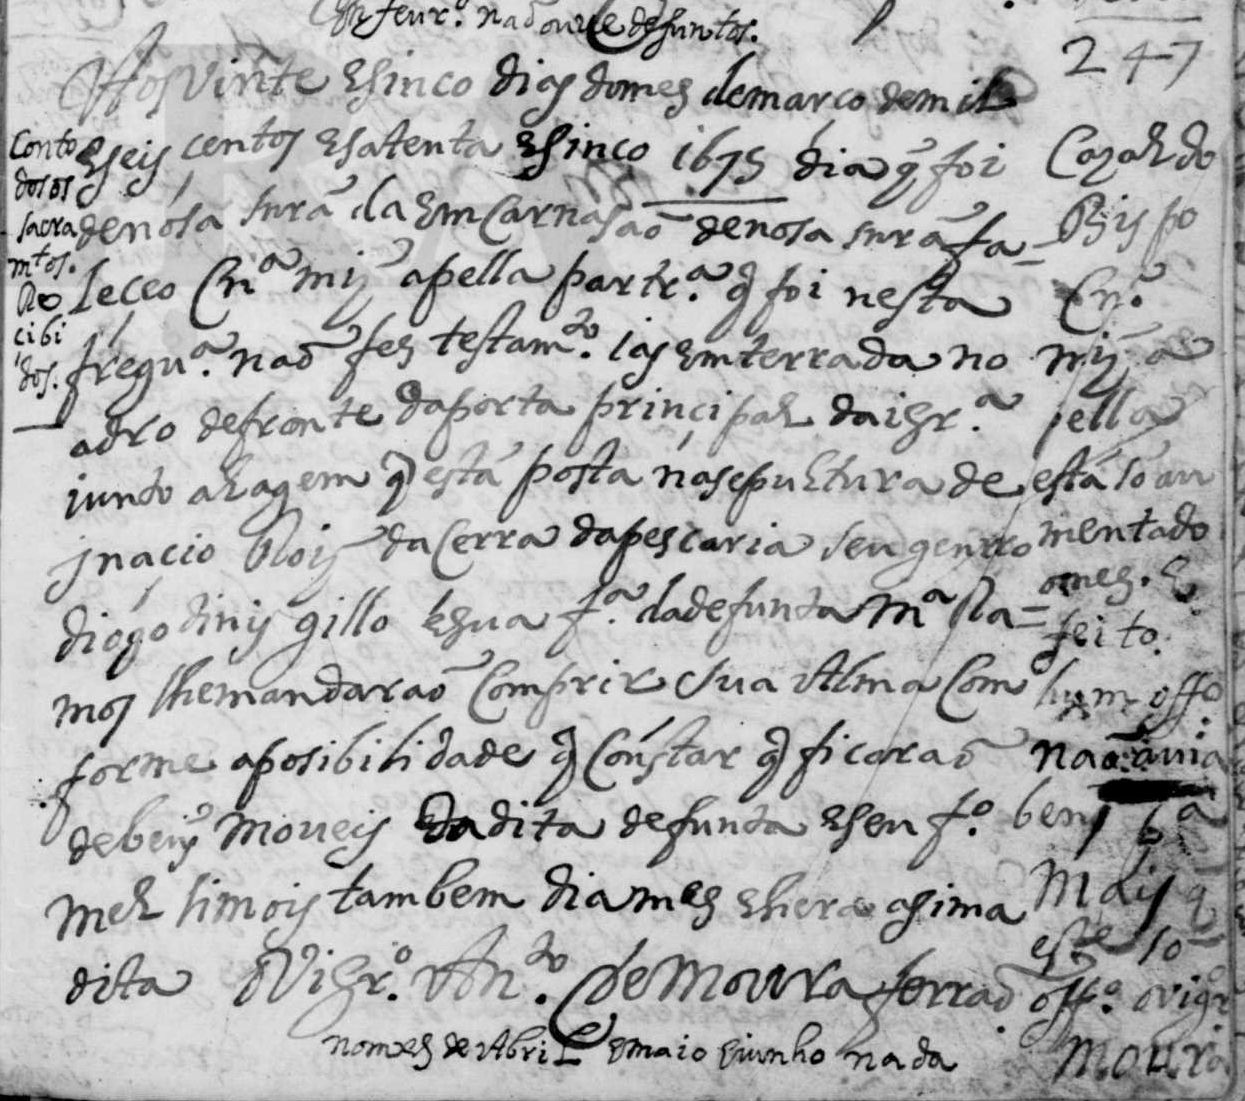 Em feur.º naõ ouve defuntos.
247
Aos vinte E sinco dias do mes de marco de mil
E seis centos E satenta E sinco 1675 dia q̃ foi
de nósa snrã da Emcarnasaõ de nosa snrã fa=
leceo Cn.ª mĩz a pella parir.ª q̃ foi nesta
fregu.ª naõ fes testam.to ias emterrada no
adro defronte da porta principal da igr.ª
junto a lagem q̃ está posta na sepultura de
jnacio Roĩz da Cerra da pescaria seu genrro
diogo dinis gillo E sua f.ª da defunta M.ª Ra=
mos lhe mandaraõ Comprir sua Alma Com
forme a posibilidade q̃ Constar q̃ ficaraõ
de beiñs moueis da dita defunta E seu f.º
Mel simois tambem dia mes E hera asima
dita O Vigr.º An.to de Moura ferraõ
no mes de Abril E maio E iunho nada
Conto
dos os
sacra
m.tos.
Re
cibi
dos.
Cazal do
Bispo
Cn.ª
mĩz a
pella
está so au
mentado
o mes. E
feito.
hum offo
naõ auia
bens p.ª
Mais q̃
este so
off.º o vigr.º
Moura